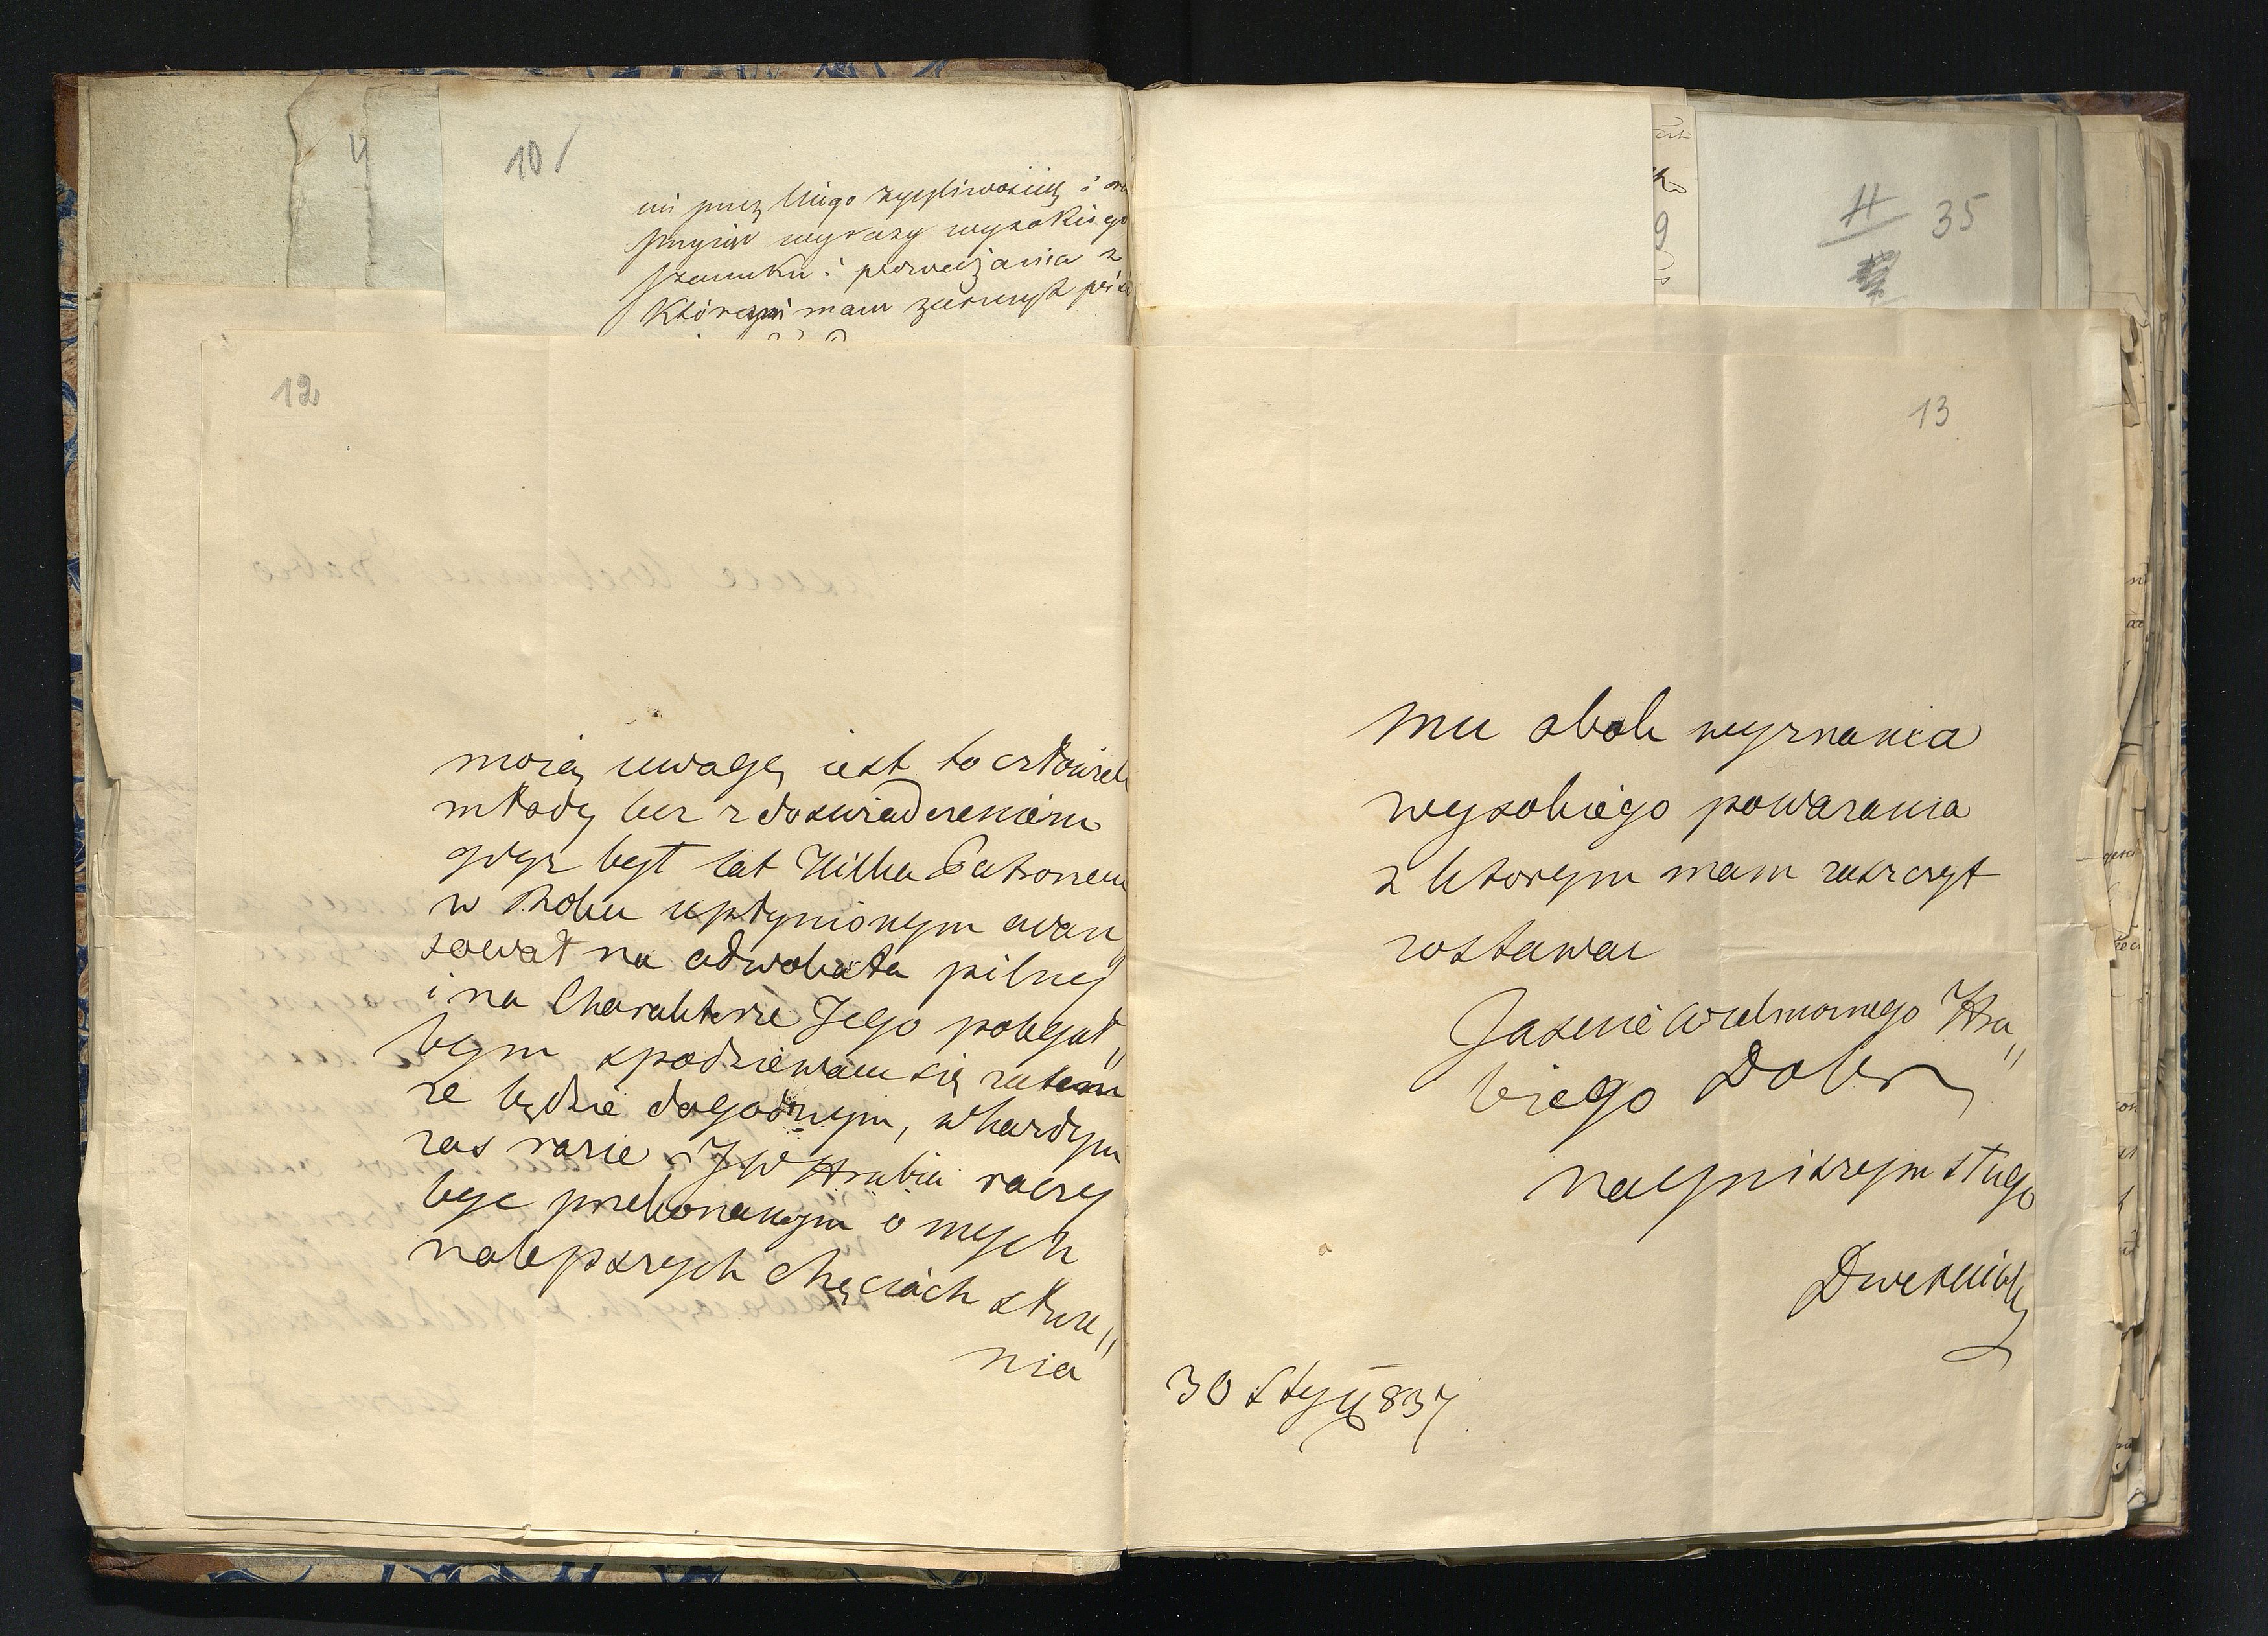 10
mi przez Niego życzliwością i
przyjąć wyrazy wysokiego
szacunku i poważania z
któremi mam zaszczyt
12
moią uwagę iest to człowiek
młody lecz z doswiadczeniem
gdyz był lat Kilka Patronem
w Roku upłynionym awan„
sował na adwokata pilny
i na Charakterze Jego polegał„
bym spodziewam się zatem
ze będzie dogodnym, w kazdym
zas razie JW Hrabia raczy
byc przekonanym o mych
nalepszych chęciach słuze„
nia
35
13
mu obok wyznania
wysokiego powazania
z ktorym mam zaszczyt
zostawac
Jasnie Wielmoznego Hra„
biego Dobr
nayniszym sługo
Dwernicki
30 Sty 837